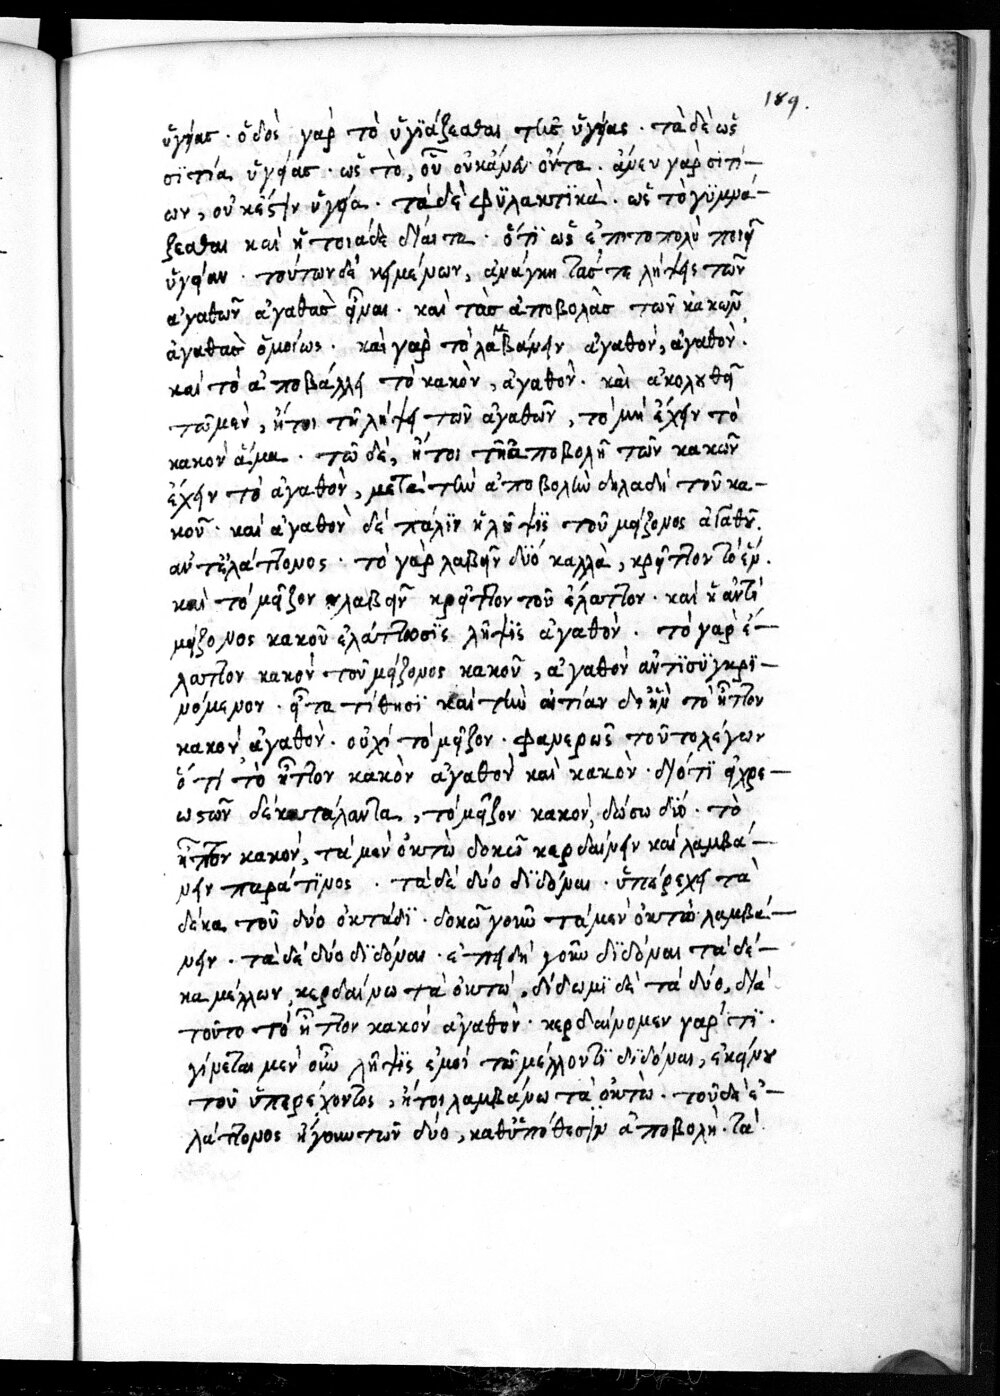 189.
ὑγείας · ὁδὸς γὰρ τὸ ὑγιάζεσθαι τῆς ὑγείας · τὰ δὲ ὡς
σιτία ὑγείας · ὡς τὸ, οὗ οὐκ ἄνευ ὄντα · ἄνευ γὰρ σιτί-
ων, οὐκ ἔστιν ὑγεία · τὰ δὲ φυλακτικὰ · ὡς τὸ γυμνά-
ζεσθαι καὶ ἡ τοιάδε δίαιτα · ὅτι ὡς ἐπιτοπολὺ ποιεῖ
ὑγείαν · τούτων δὲ κειμένων, ἀνάγκη τάς τε λήψεις τῶν
ἀγαθῶν ἀγαθὰς εἶναι · καὶ τὰς ἀποβολὰς τῶν κακῶν
ἀγαθὰς ὁμοίως · καὶ γὰρ τὸ λαμβάνειν ἀγαθόν, ἀγαθόν ·
καὶ τὸ ἀποβάλλει τὸ κακὸν, ἀγαθόν · καὶ ἀκολουθεῖ
τῷ μὲν, ἤτοι τῇ λήψει τῶν ἀγαθῶν, τὸ μὴ ἔχειν τὸ
κακὸν ἅμα · τῷ δὲ, ἤτοι τῇ ἀποβολῇ τῶν κακῶν
ἔχειν τὸ ἀγαθὸν, μετὰ τὴν ἀποβολὴν δηλαδὴ τοῦ κα-
κοῦ · καὶ ἀγαθὸν δὲ πάλιν ἡ λῆψις τοῦ μείζονος ἀγαθοῦ
ἀντ' ἐλάττονος · τὸ γὰρ λαβεῖν δύο καλλὰ, κρεῖττον τὸ ἕν ·
καὶ τὸ μεῖζον λαβεῖν κρεῖττον τοῦ ἐλάττον · καὶ ἡ ἀντὶ
μείζονος κακοῦ ἐλάττωσις λῆψις ἀγαθὸν · τὸ γὰρ ἔ-
λαττον κακὸν τοῦ μείζονος κακοῦ, ἀγαθὸν ἀντισυγκρι-
νόμενον · εἶτα τίθησι καὶ τὴν αἰτίαν δι' ἣν τὸ ἧττον
κακὸν ἀγαθὸν · οὐχὶ τὸ μεῖζον · φανερῶς τοῦτο λέγων
ὅτι τὸ ἧττον κακὸν ἀγαθὸν καὶ κακὸν · διότι εἰ χρε-
ωστῶν δέκα τάλαντα, τὸ μεῖζον κακὸν, δώσω δύο · τὸ
ἧττον κακὸν, τὰ μὲν ὀκτὼ δοκῶ κερδαίνειν καὶ λαμβά-
νειν παρά τινος · τὰ δὲ δύο διδόναι · ὑπερέχει τὰ
δέκα τοῦ δύο ὀκτάδι · δοκῶ γοῦν τὰ μὲν ὀκτὼ λαμβά-
νειν · τὰ δὲ δύο διδόναι · ἐπειδὴ γοῦν διδόναι τὰ δέ-
κα μέλλων, κερδαίνω τὰ ὀκτώ, δίδωμι δὲ τὰ δύο, διὰ
τοῦτο τὸ ἧττον κακὸν ἀγαθὸν · κερδαίνομεν γάρ τι ·
γίνεται μὲν οὖν λῆψις ἐμοὶ τῷ μέλλοντι διδόναι, ἐκείνου
τοῦ ὑπερέχοντος, ἤτοι λαμβάνω τὰ ὀκτὼ · τοῦ δὲ ἐ-
λάττονος ἤγουν τῶν δύο, καθ' ὑπόθεσιν ἀποβολὴ · τὰ